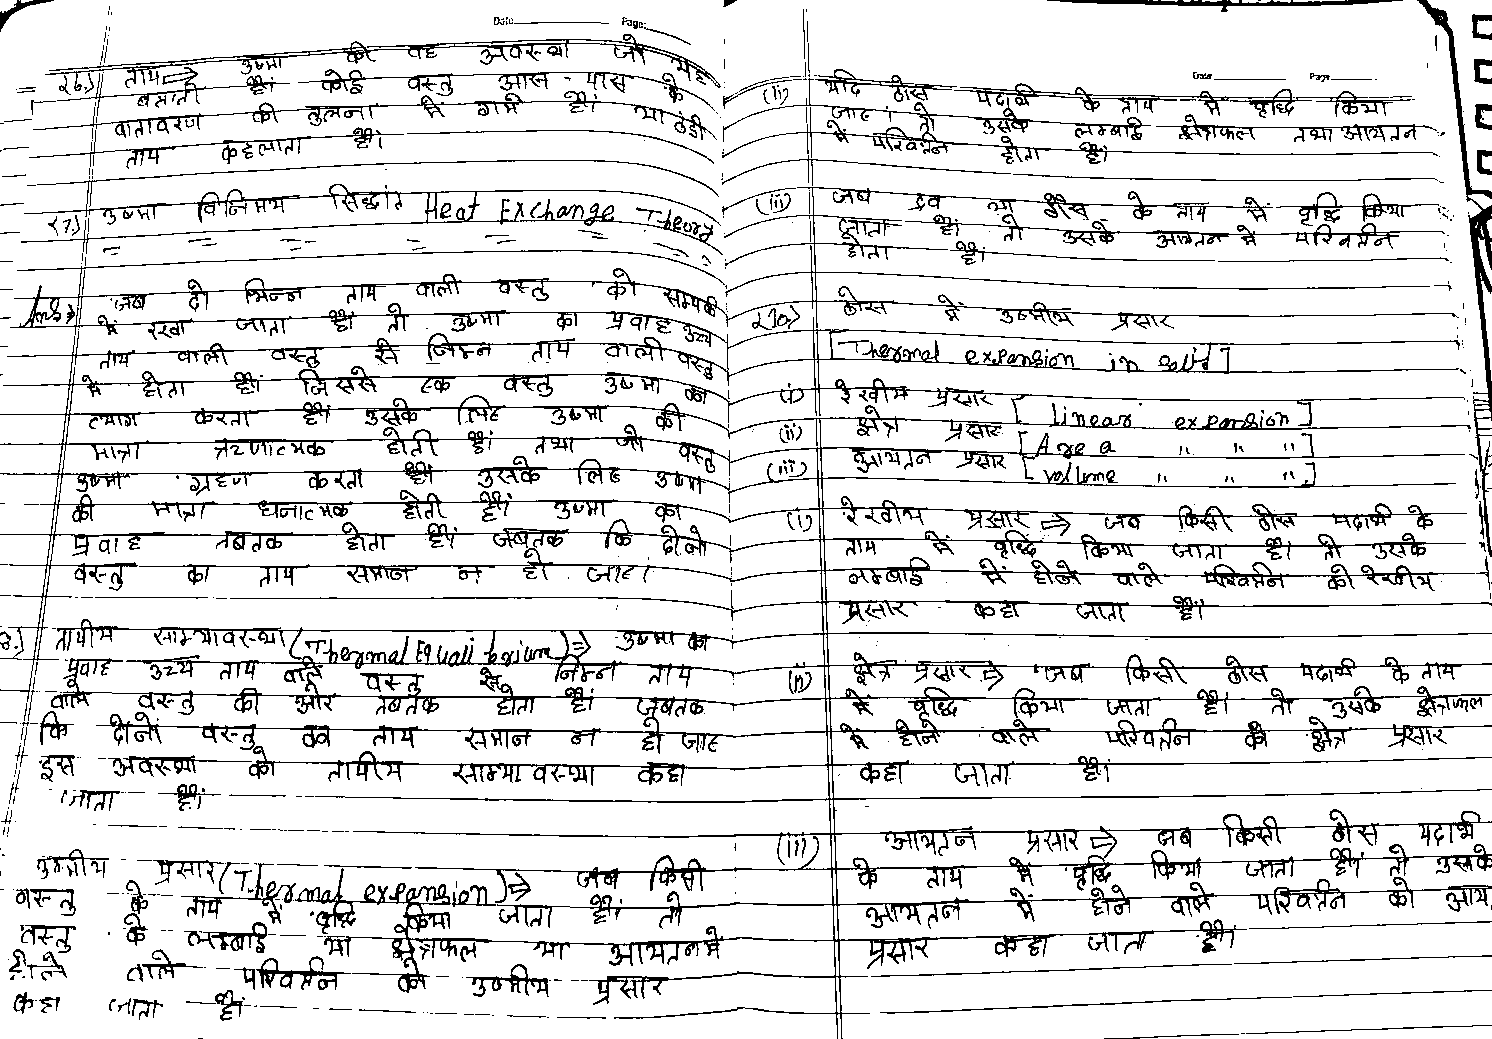 Date Page:
= 26.) ताप ⇒ उष्मा की वह अवस्था जो यह
बताती है। कोई वस्तु आस-पास के
वातावरण की तुलना में गर्म है। या ठंडी
ताप कहलाता है।
27.) उष्मा विनिमय सिद्धांत Heat Exchange Theory
Ans⇒ जब दो भिन्न ताप वाली वस्तु को सम्पर्क
में रखा जाता है। तो उष्मा का प्रवाह उच्च
ताप वाली वस्तु से निम्न ताप वाली वस्तु
में होता है। जिससे एक वस्तु उष्मा का
त्याग करता है। उसके लिए उष्मा की
मात्रा ऋणात्मक होती है। तथा जो वस्तु
उष्मा ग्रहण करता है। उसके लिए उष्मा
की मात्रा धनात्मक होती है। उष्मा का
प्रवाह तबतक होता है। जबतक कि दोनो
वस्तु का ताप समान न हो जाए।
8.) तापीय साम्यावस्था (Thermal Equalibrium) ⇒ उष्मा का
प्रवाह उच्च ताप वाले वस्तु से निम्न ताप
वाले वस्तु की ओर तबतक होता है। जबतक
कि दोनों वस्तु का ताप समान न हो जाए
इस अवस्था को तापीय साम्यावस्था कहा
जाता है।
उष्मीय प्रसार (Thermal expansion) ⇒ जब किसी
वस्तु के ताप में वृद्धि किया जाता है। तो
वस्तु के लम्बाई या क्षेत्रफल या आयतन में
होने वाले परिवर्तन को उष्मीय प्रसार
कहा जाता है।
Date Page
(ii) यदि ठोस पदार्थ के ताप में वृद्धि किया
जाए। तो उसके लम्बाई क्षेत्रफल तथा आयतन
में परिवर्तन होता है।
(iii) जब द्रव या गैस के ताप में वृद्धि किया
जाता है। तो उसके आयतन में परिवर्तन
होता है।
ठोस में उष्मीय प्रसार
[Thermal expansion in solid]
(i) रेखीय प्रसार [Linear expansion]
(ii) क्षेत्र प्रसार [Area " " "]
(iii) आयतन प्रसार [volume " " "]
(i) रेखीय प्रसार ⇒ जब किसी ठोस पदार्थ के
ताप में वृद्धि किया जाता है। तो उसके
लम्बाई में होने वाले परिवर्तन को रेखीय
प्रसार कहा जाता है।
(ii) क्षेत्र प्रसार ⇒ जब किसी ठोस पदार्थ के ताप
में वृद्धि किया जाता है। तो उसके क्षेत्रफल
में होने वाले परिवर्तन को क्षेत्र प्रसार
कहा जाता है।
(iii) आयतन प्रसार ⇒ जब किसी ठोस पदार्थ
के ताप में वृद्धि किया जाता है। तो उसके
आयतन में होने वाले परिवर्तन को आय
प्रसार कहा जाता है।